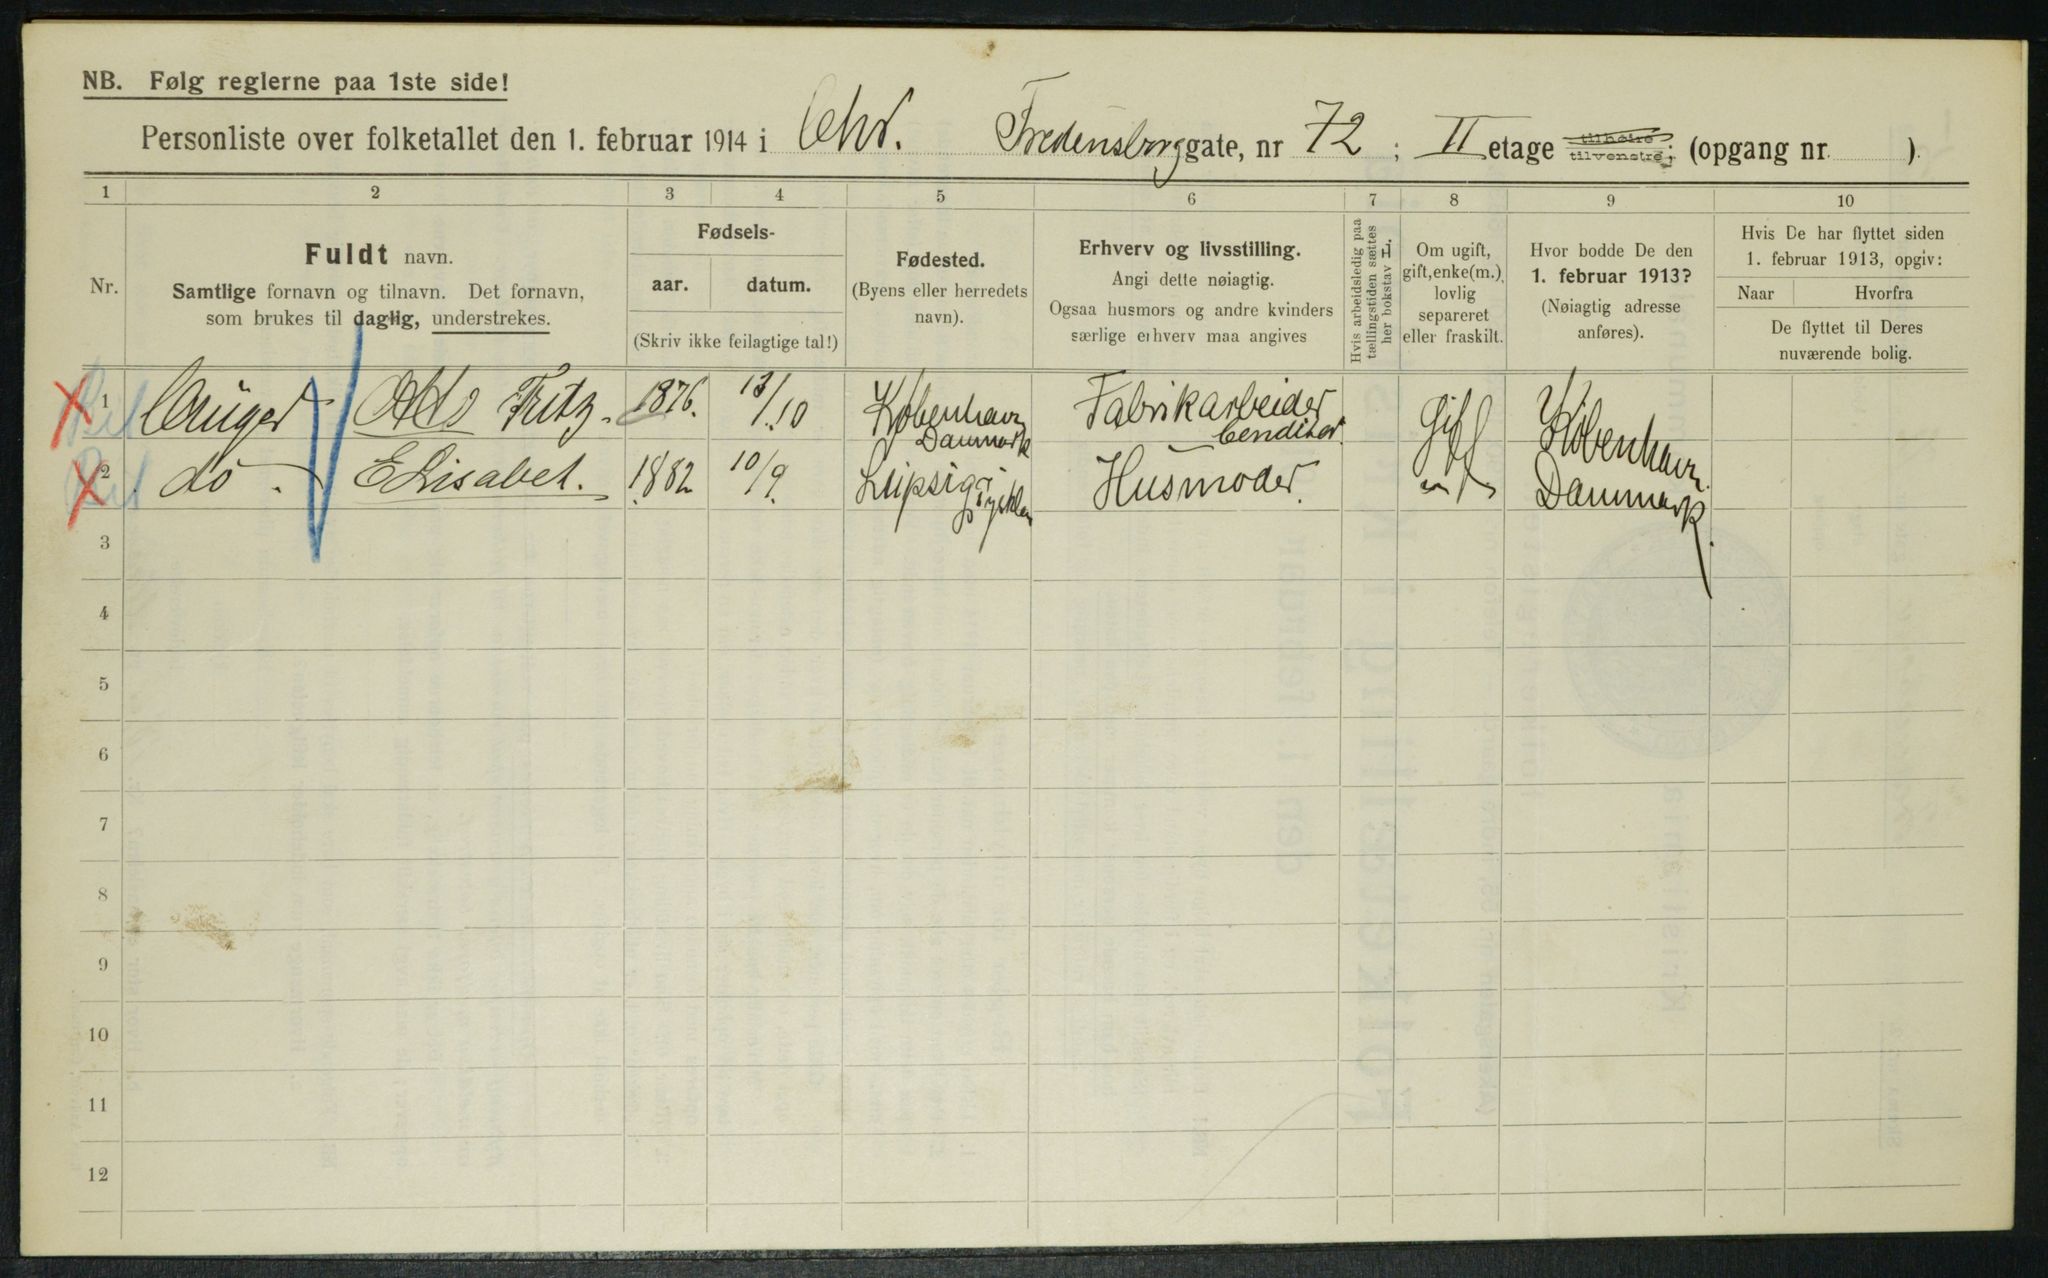 NB. Følg reglerne paa 1ste side!
Personliste over folketallet den 1. februar 1914 i Chr. Fredensborggate, nr 72 ; II etage tilhøire tilvenstre; (opgang nr. ).
1 2 3 4 5 6 7 8 9 10
Nr.
Fuldt navn.
Samtlige fornavn og tilnavn. Det fornavn,
som brukes til daglig, understrekes.
Fødsels-
aar. datum.
(Skriv ikke feilagtige tal!)
Fødested.
(Byens eller herredets
navn).
Erhverv og livsstilling.
Angi dette nøiagtig.
Ogsaa husmors og andre kvinders
særlige erhverv maa angives
Hvis arbeidsledig paa
tællingstiden sættes
her bokstav L.
Om ugift,
gift, enke(m.),
lovlig
separeret
eller fraskilt.
Hvor bodde De den
1. februar 1913?
(Nøiagtig adresse
anføres).
Hvis De har flyttet siden
1. februar 1913, opgiv:
Naar Hvorfra
De flyttet til Deres
nuværende bolig.
1 Crüger Otto Fritz. 1876. 13/10 København Danmark Fabrikarbeider Gift København
2 do. Elisabet. 1882 10/9. Leipsig Husmoder. Danmark.
3
4
5
6
7
8
9
10
11
12